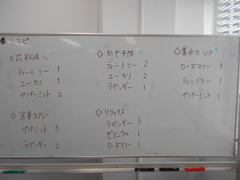 レシピ
◇花粉症に
ティートリー 1
ユーカリ 1
ペパーミント 2
◇かぜ予防
ティートリー 2
ユーカリ 2
ラベンダー 1
◇集中力UP↑
ローズマリー 3
ティートリー 1
ペパーミント 1
◇消臭スプレー
ペパーミント 3
ラベンダー 2
◇リラックス
ラベンダー 3
ゼラニウム 1
ローズマリー 1